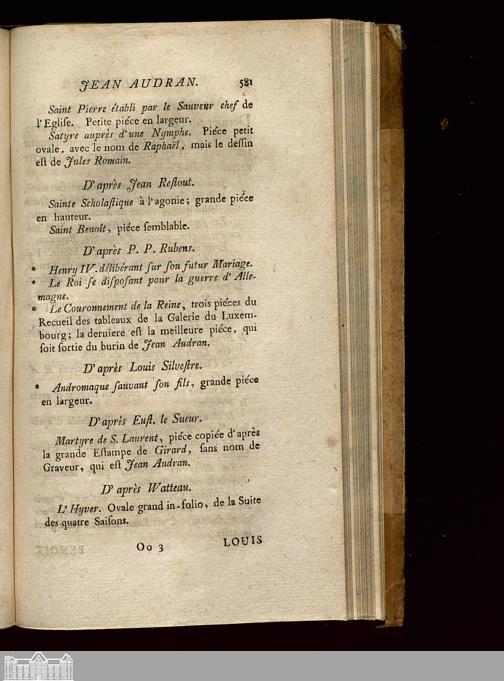 JEAN AUDRAN. 581
Saint Pierre établi par le Sauveur chef de
l'Egliſe. Petite piéce en largeur.
Satyre auprès d'une Nymphe. Piéce petit
ovale, avec le nom de Raphaël, mais le deſſin
eſt de Jules Romain.
D'après Jean Reſtout.
Sainte Scholaſtique à l'agonie; grande piéce
en hauteur.
Saint Benoît, piéce ſemblable.
D'après P. P. Rubens.
* Henry IV. délibérant ſur ſon futur Mariage.
* Le Roi ſe diſpoſant pour la guerre d'Alle-
magne.
* Le Couronnement de la Reine, trois piéces du
Recueil des tableaux de la Galerie du Luxem-
bourg; la derniere eſt la meilleure piéce, qui
ſoit ſortie du burin de Jean Audran.
D'après Louis Silveſtre.
* Andromaque ſauvant ſon fils, grande piéce
en largeur.
D'après Euſt. le Sueur.
Martyre de S. Laurent, piéce copiée d'après
la grande Eſtampe de Girard, ſans nom de
Graveur, qui eſt Jean Audran.
D'après Watteau.
L'Hyver. Ovale grand in-folio, de la Suite
des quatre Saiſons.
Oo 3 LOUIS